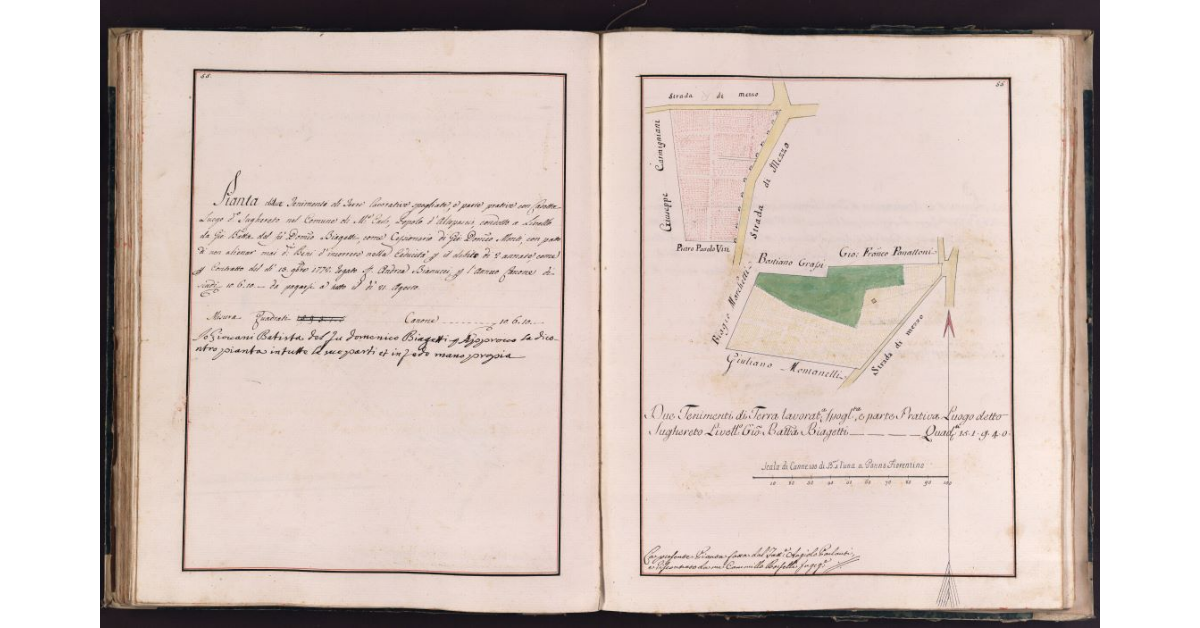 55.
Pianta di due Tenimenti di Terre lavorative spogliate, e parte prative con
Luogo d.° Sughereto nel Comune di M.te Carlo, Popolo d'Altopascio, condotto a Livello
da Gio: Batta del q.
Domco Biagetti, come Cessionario di Gio: Domco con patto
di non alienar mai
Beni d'incorrere nella Caducità
il debito di 2 annate come
Contratto del di 13.
1772. rogato
Andrea Bianucci,
l'annuo Canone di
10. 6. 10. da pagarsi
tutto il di 21 Agosto.
Misura Quadrati
Canone 10. 6. 10.
Io Giovani Batista del fu domenico Biagetti Approvo la dico
ntro pianta in tutte le sue parti et in fede mano propia
55
Strada di mezzo
Giuseppe Carmigniani
Strada di Mezzo
Pietro Paolo Viti
Bastiano Grassi
Gio: Franco Panattoni
Biaggio Marchetti
Strada di mezzo
Giuliano Momanelli
Due Tenimenti di Terra lavorat.a spogl.a, e parte Prativa Luogo detto
Sughereto Livell.o Gio: Batta Biagetti Quad.i 15. 1. 9. 4. 0.
Scala di Canne di a Panno Fiorentino
10 20 30 40 50 60 70 80 90 100
La presente Pianta
del
Angiolo
Cammillo